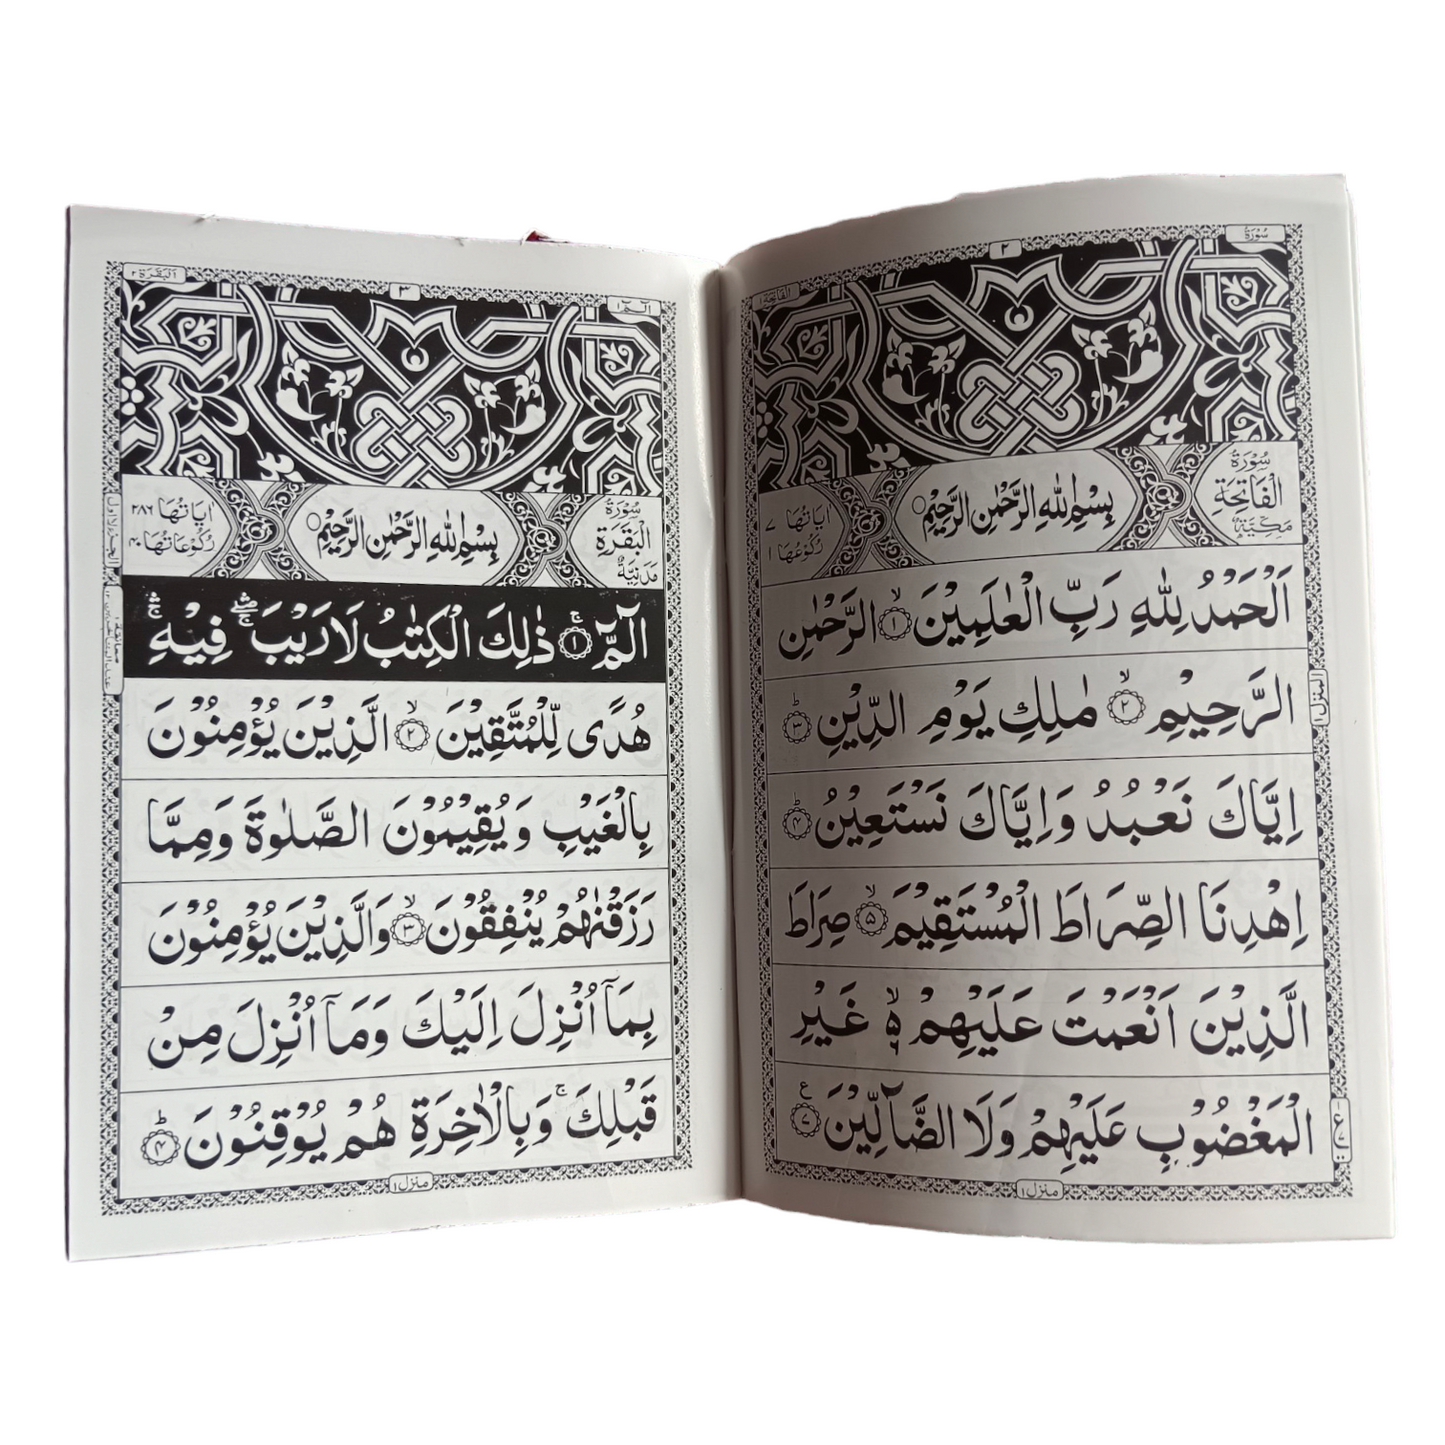 سُوْرَةُ
٢
الْفَاتِحَة ١
سُوْرَةُ
الْفَاتِحَةِ
مَكِّيَّةٌ
بِسْمِ اللّٰهِ الرَّحْمٰنِ الرَّحِيْمِ
اٰيَاتُهَا ٧
رُكُوْعُهَا ١
اَلْحَمْدُ لِلّٰهِ رَبِّ الْعٰلَمِيْنَ ۙ﴿١﴾ الرَّحْمٰنِ
الرَّحِيْمِ ۙ﴿٢﴾ مٰلِكِ يَوْمِ الدِّيْنِ ؕ﴿٣﴾
اِيَّاكَ نَعْبُدُ وَاِيَّاكَ نَسْتَعِيْنُ ؕ﴿٤﴾
اِهْدِنَا الصِّرَاطَ الْمُسْتَقِيْمَ ۙ﴿٥﴾ صِرَاطَ
الَّذِيْنَ اَنْعَمْتَ عَلَيْهِمْ ۙ۬ غَيْرِ
الْمَغْضُوْبِ عَلَيْهِمْ وَلَا الضَّآلِّيْنَ ﴿٧﴾ ع
المنزل ١
منزل ١
الٓمّٓ ١
٣
اَلْبَقَرَة ٢
سُوْرَةُ
الْبَقَرَةِ
مَدَنِيَّةٌ
بِسْمِ اللّٰهِ الرَّحْمٰنِ الرَّحِيْمِ
اٰيَاتُهَا ٢٨٦
رُكُوْعَاتُهَا ٤٠
الٓمّٓ ۚ﴿١﴾ ذٰلِكَ الْكِتٰبُ لَا رَيْبَ ۖۛۚ فِيْهِ ۛۚ
هُدًى لِّلْمُتَّقِيْنَ ۙ﴿٢﴾ الَّذِيْنَ يُؤْمِنُوْنَ
بِالْغَيْبِ وَيُقِيْمُوْنَ الصَّلٰوةَ وَمِمَّا
رَزَقْنٰهُمْ يُنْفِقُوْنَ ۙ﴿٣﴾ وَالَّذِيْنَ يُؤْمِنُوْنَ
بِمَآ اُنْزِلَ اِلَيْكَ وَمَآ اُنْزِلَ مِنْ
قَبْلِكَ ۚ وَبِالْاٰخِرَةِ هُمْ يُوْقِنُوْنَ ؕ﴿٤﴾
منزل ١